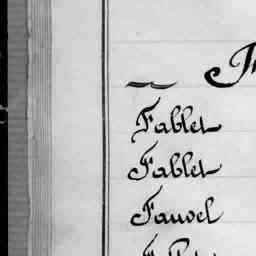 Fablet
Fablet
Fauvel